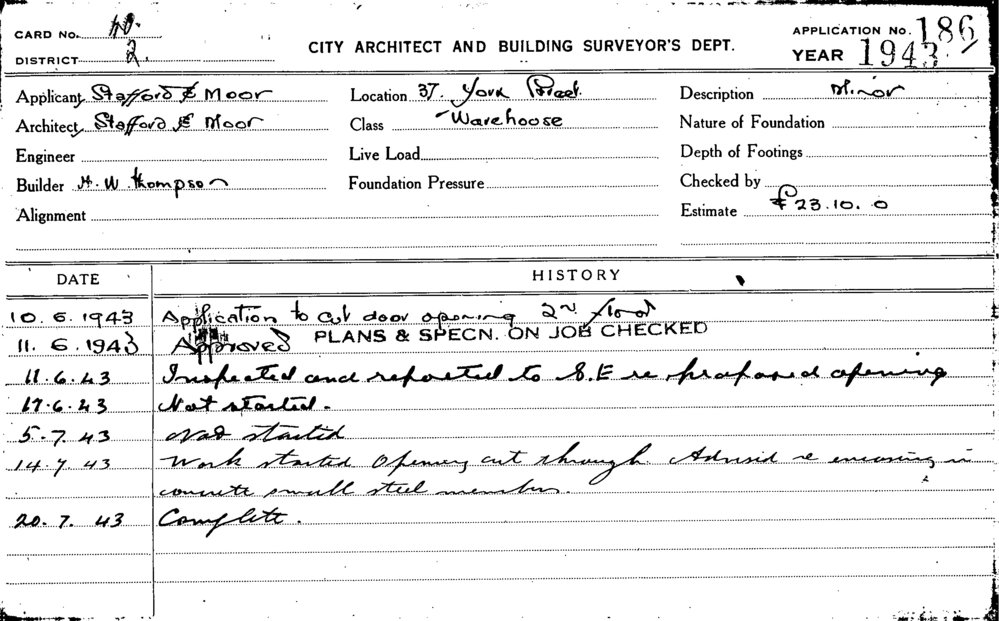 CARD No. 40.
DISTRICT 2.
CITY ARCHITECT AND BUILDING SURVEYOR'S DEPT.
APPLICATION No. 186
YEAR 1943
Applicant Stafford & Moor
Location 37. York Street.
Description Minor
Architect Stafford & Moor
Class Warehoose
Nature of Foundation
Engineer
Live Load
Depth of Footings
Builder H. W Thompson
Foundation Pressure
Checked by
Alignment
Estimate £23.10.0
DATE
HISTORY
10.6.1943 Application to cut door opening 2nd floor
11.6.1943 Approved PLANS & SPECN. ON JOB CHECKED
11.6.43 Inspected and reported to S.E re proposed opening
17.6.43 Not started.
5.7.43 Not started
14.7.43 Work started Opening cut through. Advised re encasing in
concrete small steel members.
20.7.43 Complete.